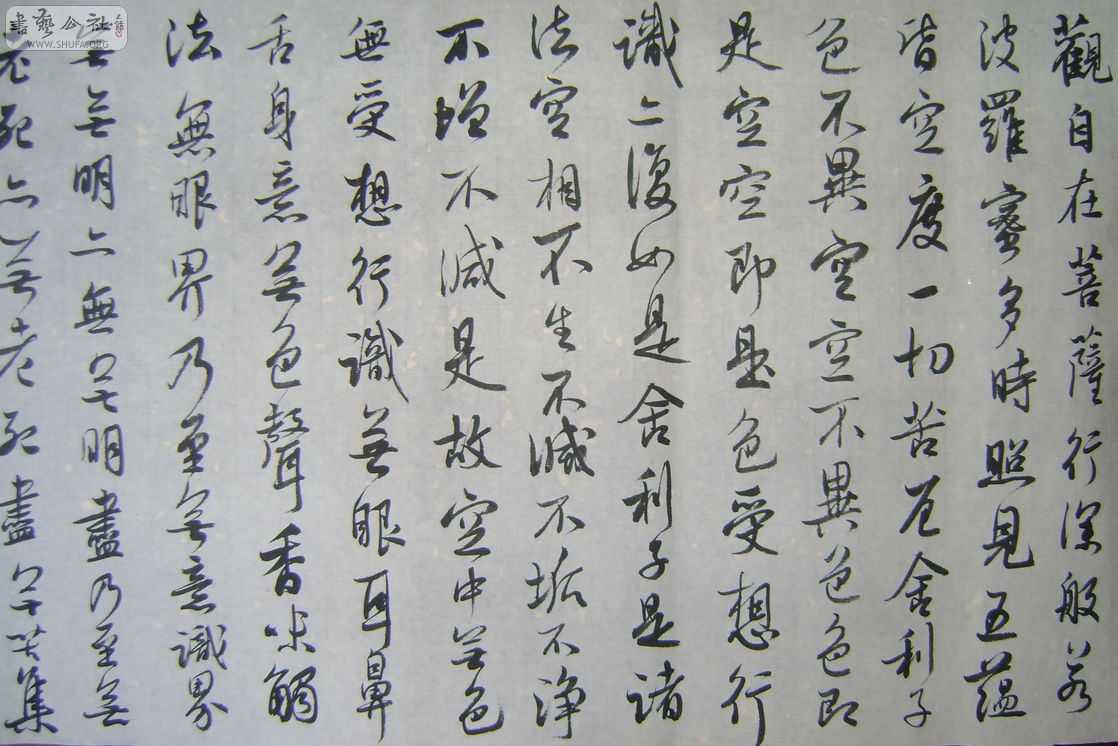 觀自在菩薩行深般若
波羅蜜多時照見五蘊
皆空度一切苦厄舍利子
色不異空空不異色色即
是空空即是色受想行
識亦復如是舍利子是諸
法空相不生不滅不垢不淨
不增不減是故空中無色
無受想行識無眼耳鼻
舌身意無色聲香味觸
法無眼界乃至無意識界
無無明亦無無明盡乃至無
老死亦無老死盡無苦集
書藝公社
WWW.SHUFA.ORG